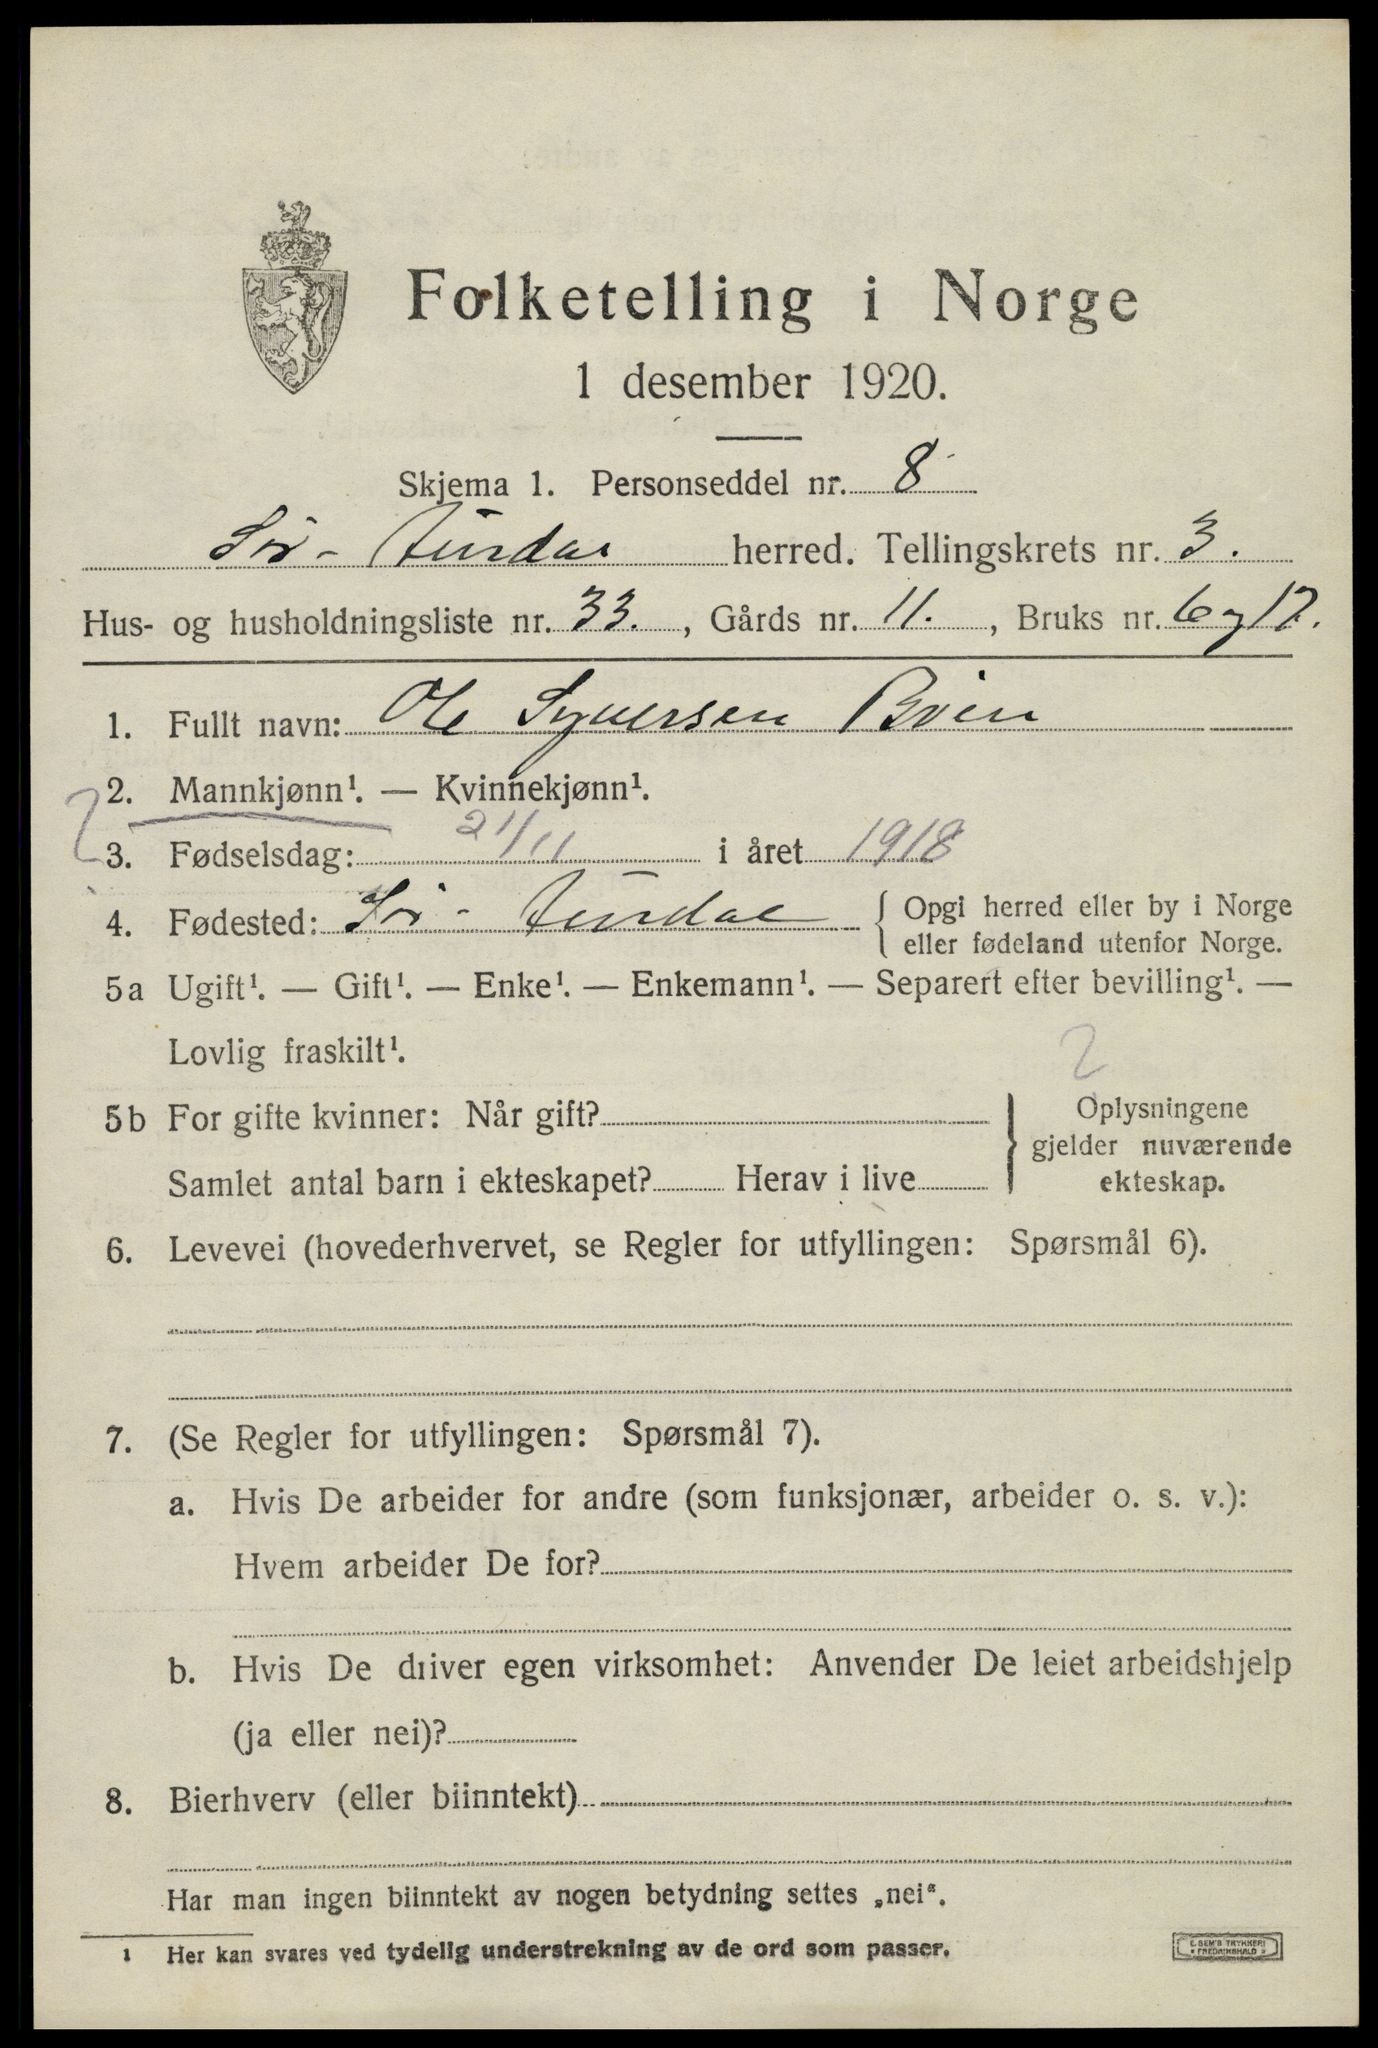 Folketelling i Norge
1 desember 1920.
Skjema 1. Personseddel nr. 8
Sør-Aurdal herred. Tellingskrets nr. 3.
Hus- og husholdningsliste nr. 33., Gårds nr. 11., Bruks nr. 6 og 17.
1. Fullt navn: Ole Syversen Bøen
2. Mannkjønn¹. — Kvinnekjønn¹.
3. Fødselsdag: 21/11 i året 1918
4. Fødested: Sør-Aurdal { Opgi herred eller by i Norge
eller fødeland utenfor Norge.
5a Ugift¹. — Gift¹. — Enke¹. — Enkemann¹. — Separert efter bevilling¹. —
Lovlig fraskilt¹.
2
5b For gifte kvinner: Når gift?
Samlet antal barn i ekteskapet? Herav i live
} Oplysningene
gjelder nuværende
ekteskap.
6. Levevei (hovederhvervet, se Regler for utfyllingen: Spørsmål 6).
7. (Se Regler for utfyllingen: Spørsmål 7).
a. Hvis De arbeider for andre (som funksjonær, arbeider o. s. v.):
Hvem arbeider De for?
b. Hvis De driver egen virksomhet: Anvender De leiet arbeidshjelp
(ja eller nei)?
8. Bierhverv (eller biinntekt)
Har man ingen biinntekt av nogen betydning settes „nei“.
1 Her kan svares ved tydelig understrekning av de ord som passer.
E. SEM'S TRYKKERI
FREDRIKSHALD